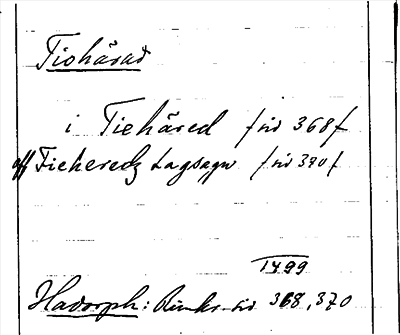 Tiohärad
i Tiehäred sid 368 f
aff Tieheredz Lagsagu sid 370 f
1499
Hadorph: Rimkr. sid 368, 370